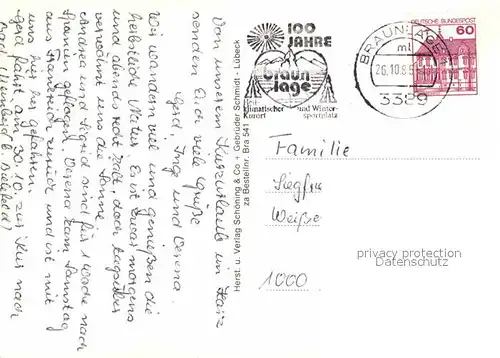 Von unserem Kurzurlaub im Harz
senden Euch viele Grüße
Gerd, Inge und Verena.
Wir wandern viel und genießen die
herbstliche Natur. Es ist zwar morgens
und abends recht kalt, doch tagsüber
verwöhnt uns die Sonne.
Andrea und Sigrid sind für 1 Woche nach
Spanien geflogen. Verena kam Samstag
aus Frankreich zurück und ist mit
uns hier her gefahren.
Gerd fährt am 30.10. zur Kur nach
Bad b. Bielefeld)
Herst. u. Verlag Schöning & Co + Gebrüder Schmidt · Lübeck
za Bestellnr. Bra 541
100
JAHRE
braun
lage
Heil-
klimatischer und Winter-
Kurort sportplatz
BRAUNLAGE
mt
26.10.
3389
DEUTSCHE BUNDESPOST
60
Familie
Siegfr.
Weiße
privacy protection
Datenschutz
1000